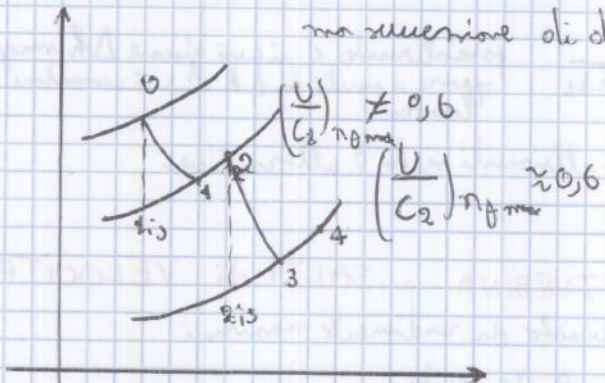 una successione di d
0
(U/C₂) η_θ max ≠ 0,6
1
2
1is
(U/C₂) η_θ max ≈ 0,6
4
3
2is